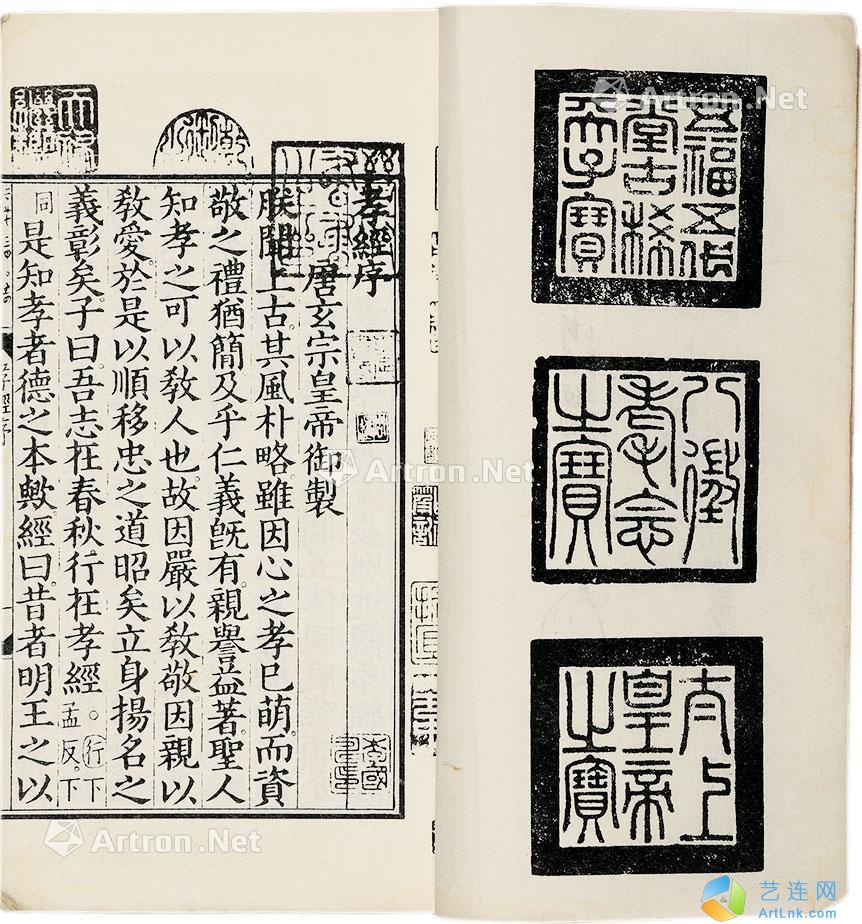 五福五代
堂古稀
天子寶
八徵
耄念
之寶
太上
皇帝
之寶
孝經序
唐玄宗皇帝御製
朕聞上古。其風朴略雖因心之孝已萌。而資
敬之禮猶簡及乎仁義旣有。親譽益著。聖人
知孝之可以敎人也。故因嚴以敎敬因親以
敎愛。於是以順移忠之道昭矣立身揚名之
義彰矣。子曰。吾志在春秋。行在孝經。行下孟反。下
同是知孝者德之本歟。經曰。昔者明王之以
孝經序
天祿
繼鑑
乾隆
Artron.Net
Artron.Net
Artron.Net
Artron.Net
艺连网
ArtLnk.com